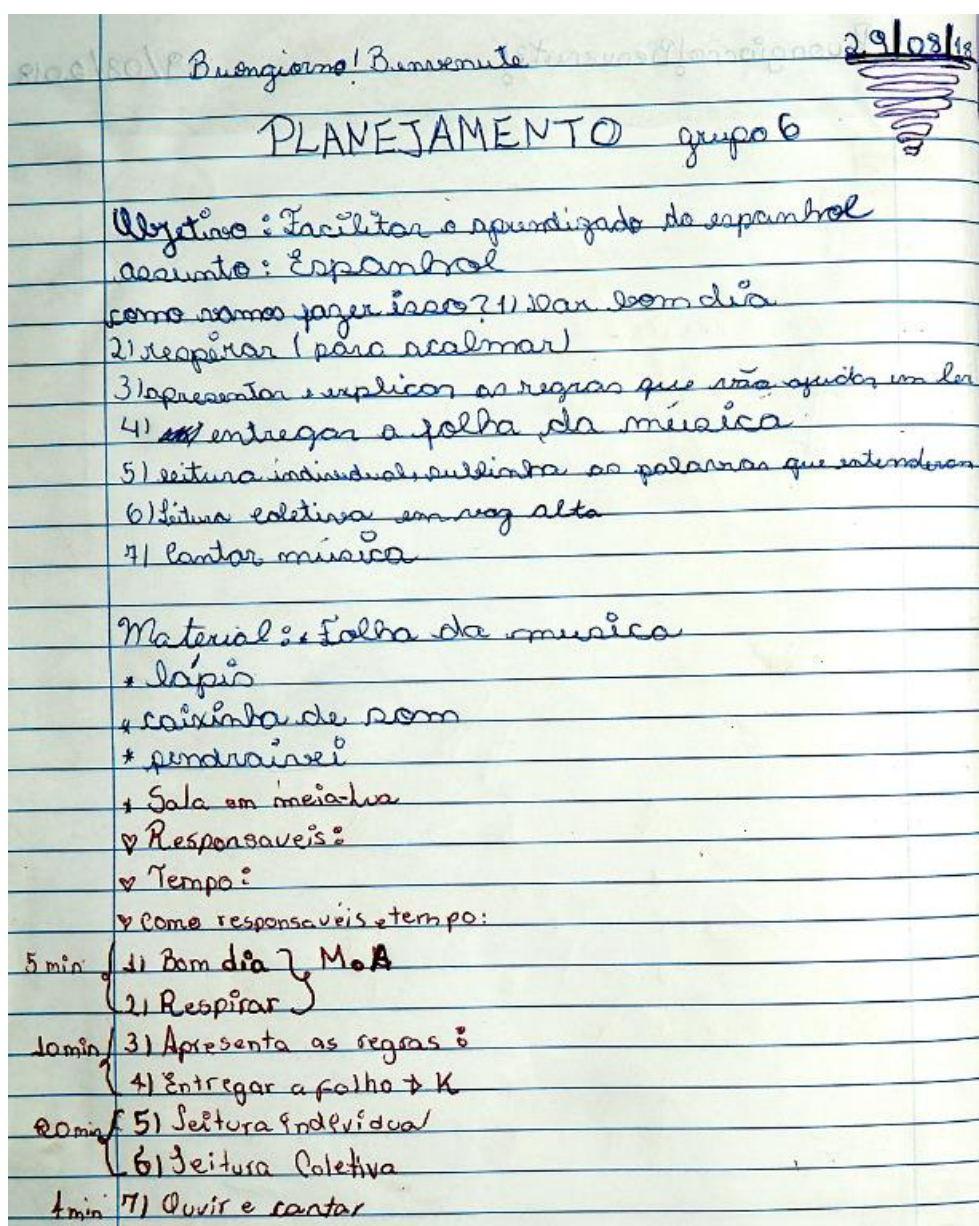 Buongiorno! Benvenute
29/08/18
PLANEJAMENTO grupo 6
Objetivo: Facilitar o aprendizado do espanhol
assunto: Espanhol
como vamos fazer isso? 1) Dar bom dia
2) respirar (para acalmar)
3) apresentar e explicar as regras que vão ajudar em ler
4) entregar a folha da música
5) leitura individual, sublinha as palavras que entenderam
6) Leitura coletiva em voz alta
7) Cantar música
Material: * Folha da musica
* lápis
* caixinha de som
* pendraivei
* Sala em meia-lua
♥ Responsaveis:
♥ Tempo:
♥ Como responsavéis e tempo:
5 min { 1) Bom dia } M.A
2) Respirar
10 min { 3) Apresenta as regras :
4) Entregar a folha → K
20 min { 5) Leitura individual
6) Leitura Coletiva
4 min 7) Ouvir e cantar